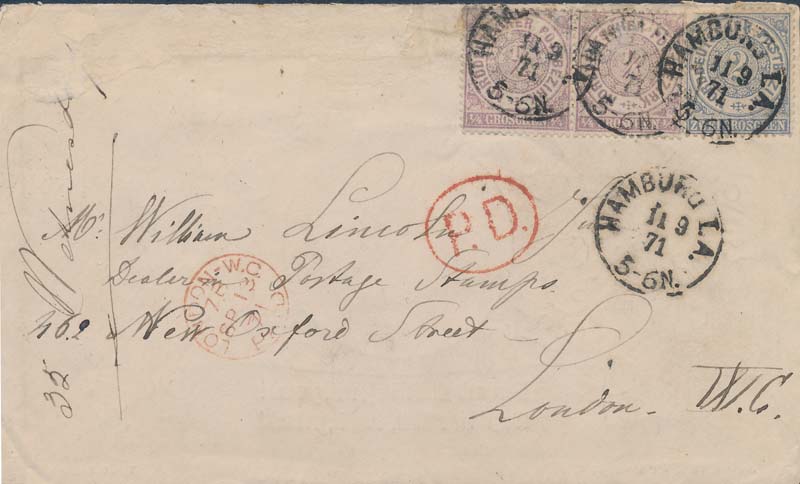 HAMBURG I.A.
11 9
71
5-6N.
¼ GROSCHEN
HAMBURG I.A.
11 9
71
5-6N.
HAMBURG I.A.
11 9
71
5-6N.
P.D.
Mr. William Lincoln Jun
Dealer in Postage Stamps.
462 New Oxford Street
London. W.C.
LONDON-W.C.
PAID
35